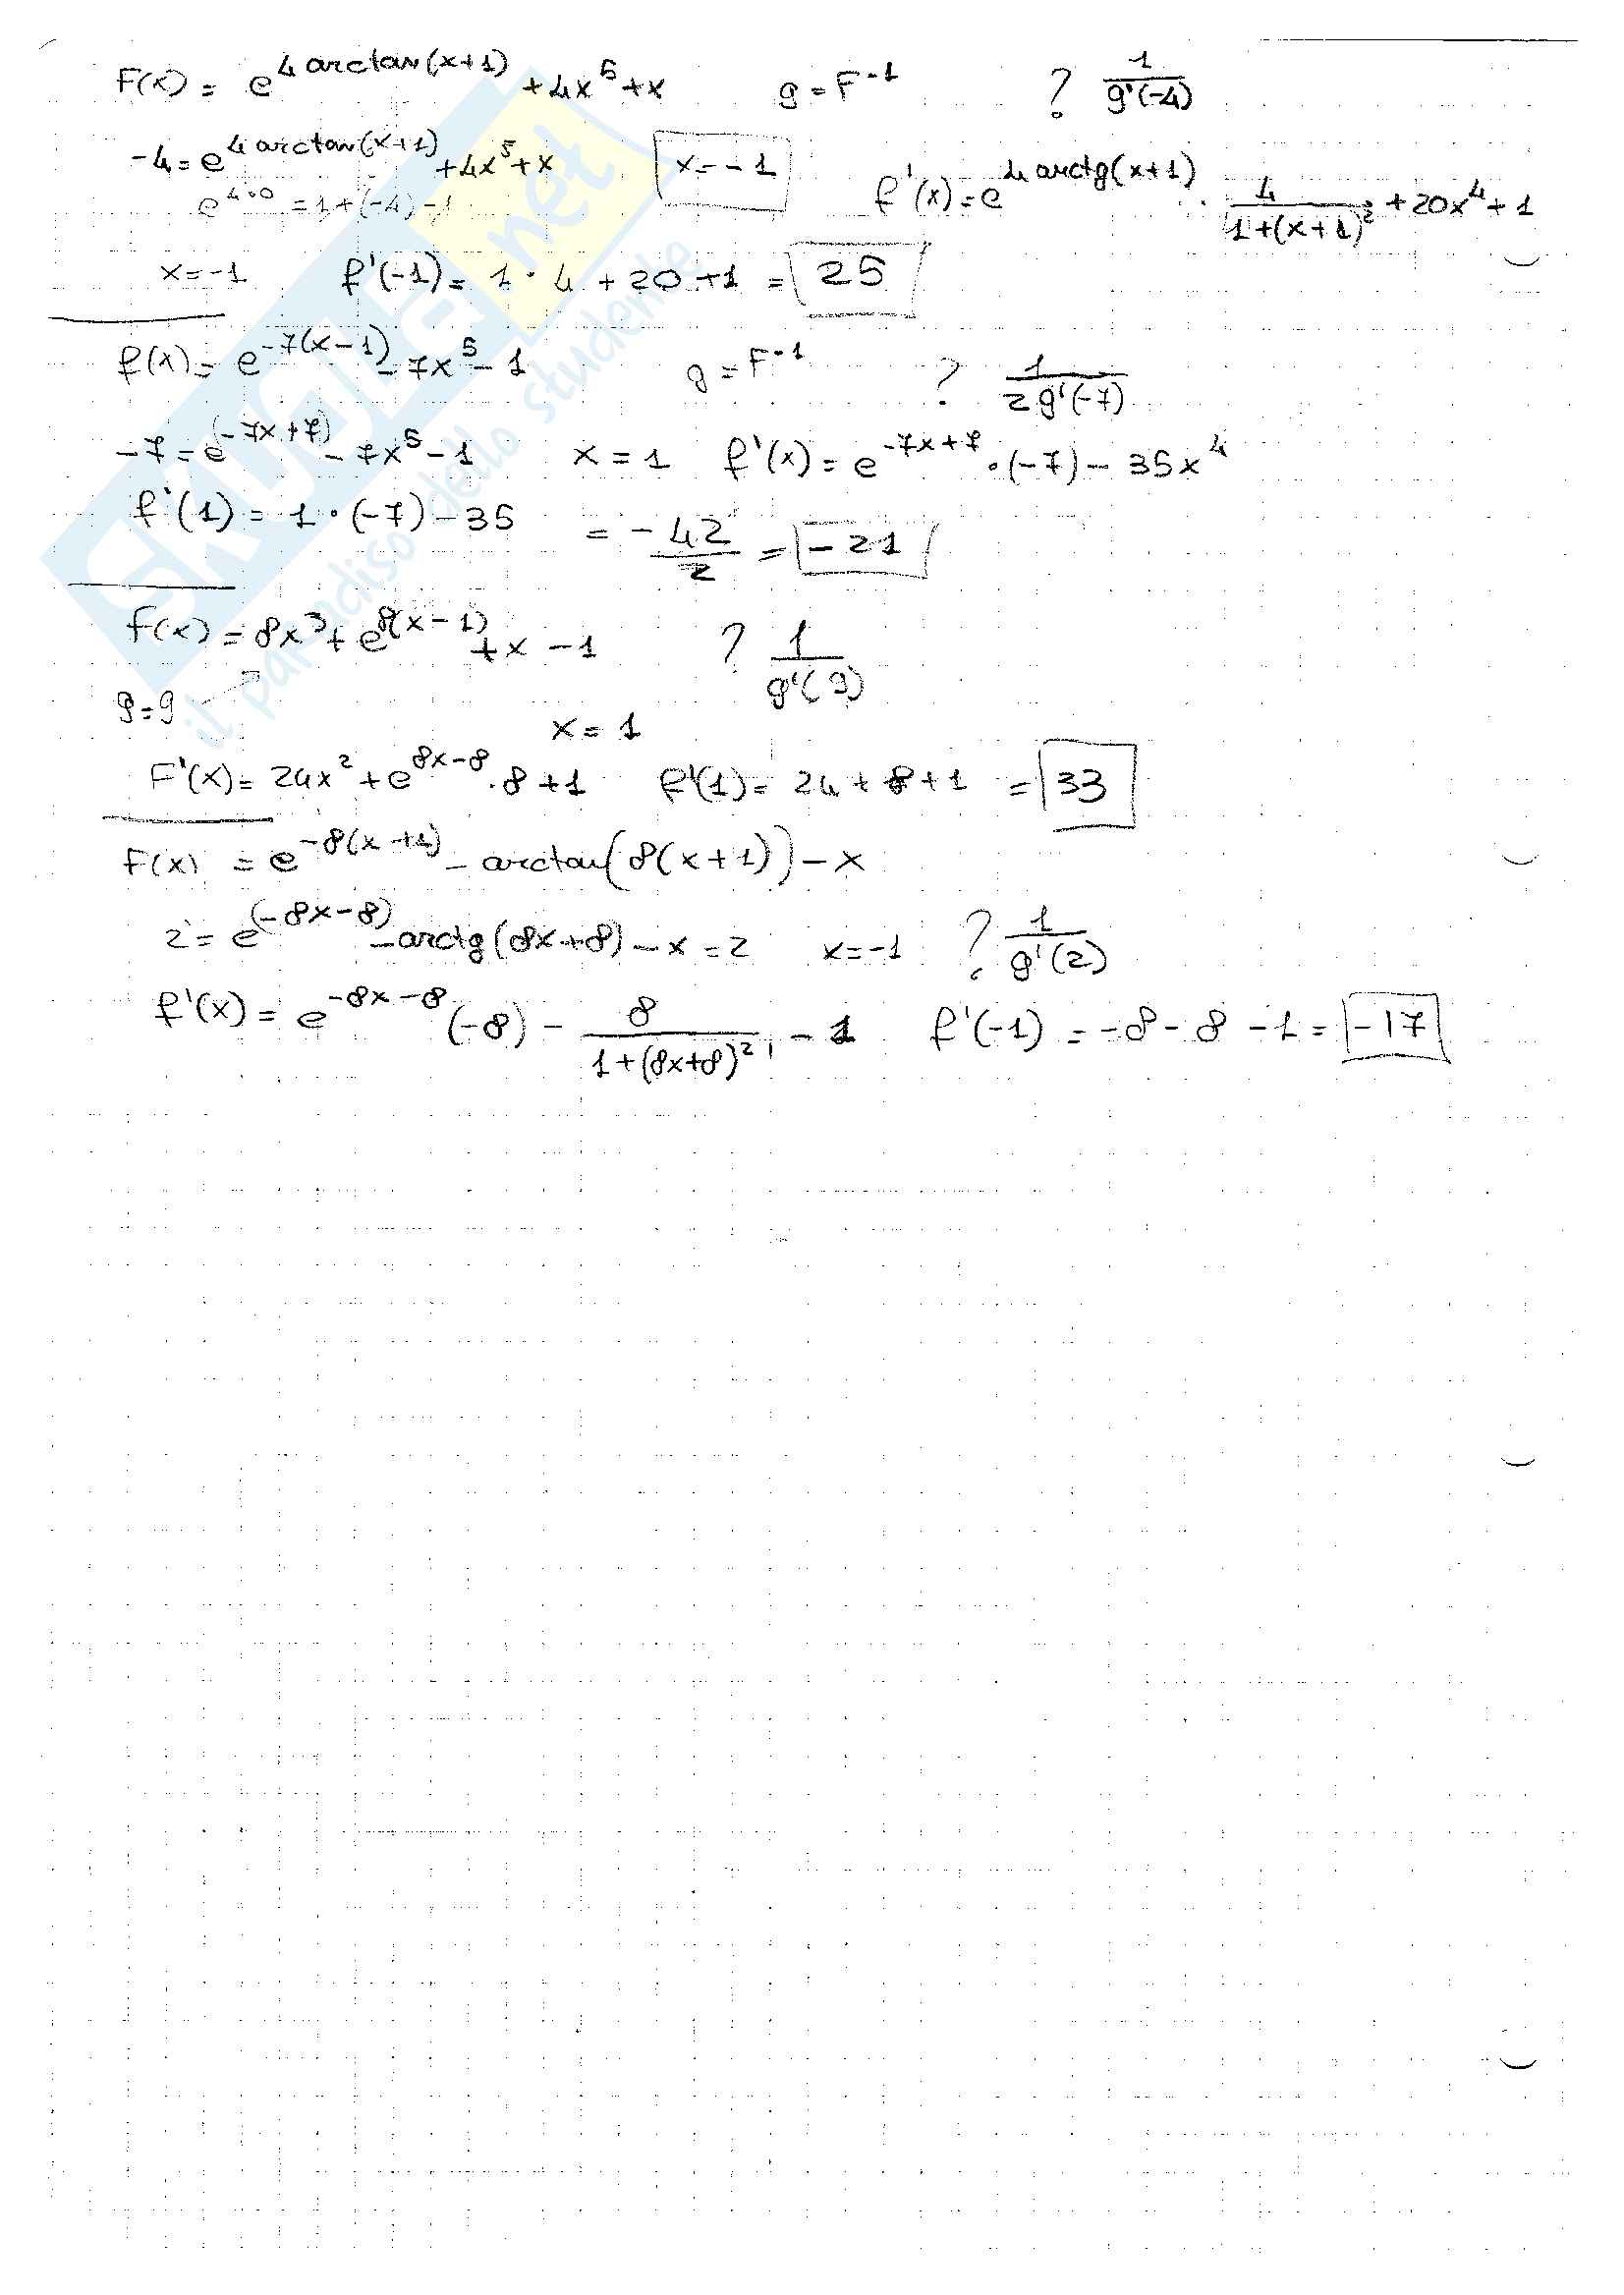 F(x) = e^{4 arctan(x+1)} + 4x^5 + x    g = F^{-1}    ? \frac{1}{g'(-4)}
-4 = e^{4 arctan(x+1)} + 4x^5 + x    x = -1    f'(x) = e^{4 arctg(x+1)} · \frac{4}{1+(x+1)^2} + 20x^4 + 1
e^{4·0} = 1 + (-4) - 1
x = -1    f'(-1) = 1 · 4 + 20 + 1 = 25
f(x) = e^{-7(x-1)} - 7x^5 - 1    g = F^{-1}    ? \frac{1}{2g'(-7)}
-7 = e^{(-7x+7)} - 7x^5 - 1    x = 1    f'(x) = e^{-7x+7} · (-7) - 35x^4
f'(1) = 1 · (-7) - 35 = \frac{-42}{2} = -21
f(x) = 8x^3 + e^{8(x-1)} + x - 1    ? \frac{1}{g'(9)}
9 = 9
x = 1
F'(x) = 24x^2 + e^{8x-8} · 8 + 1    f'(1) = 24 + 8 + 1 = 33
F(x) = e^{-8(x+1)} - arctan(8(x+1)) - x
2 = e^{(-8x-8)} - arctg(8x+8) - x = 2    x = -1    ? \frac{1}{g'(2)}
f'(x) = e^{-8x-8} (-8) - \frac{8}{1+(8x+8)^2} - 1    f'(-1) = -8 - 8 - 1 = -17
SKUOLA.net
il paradiso dello studente